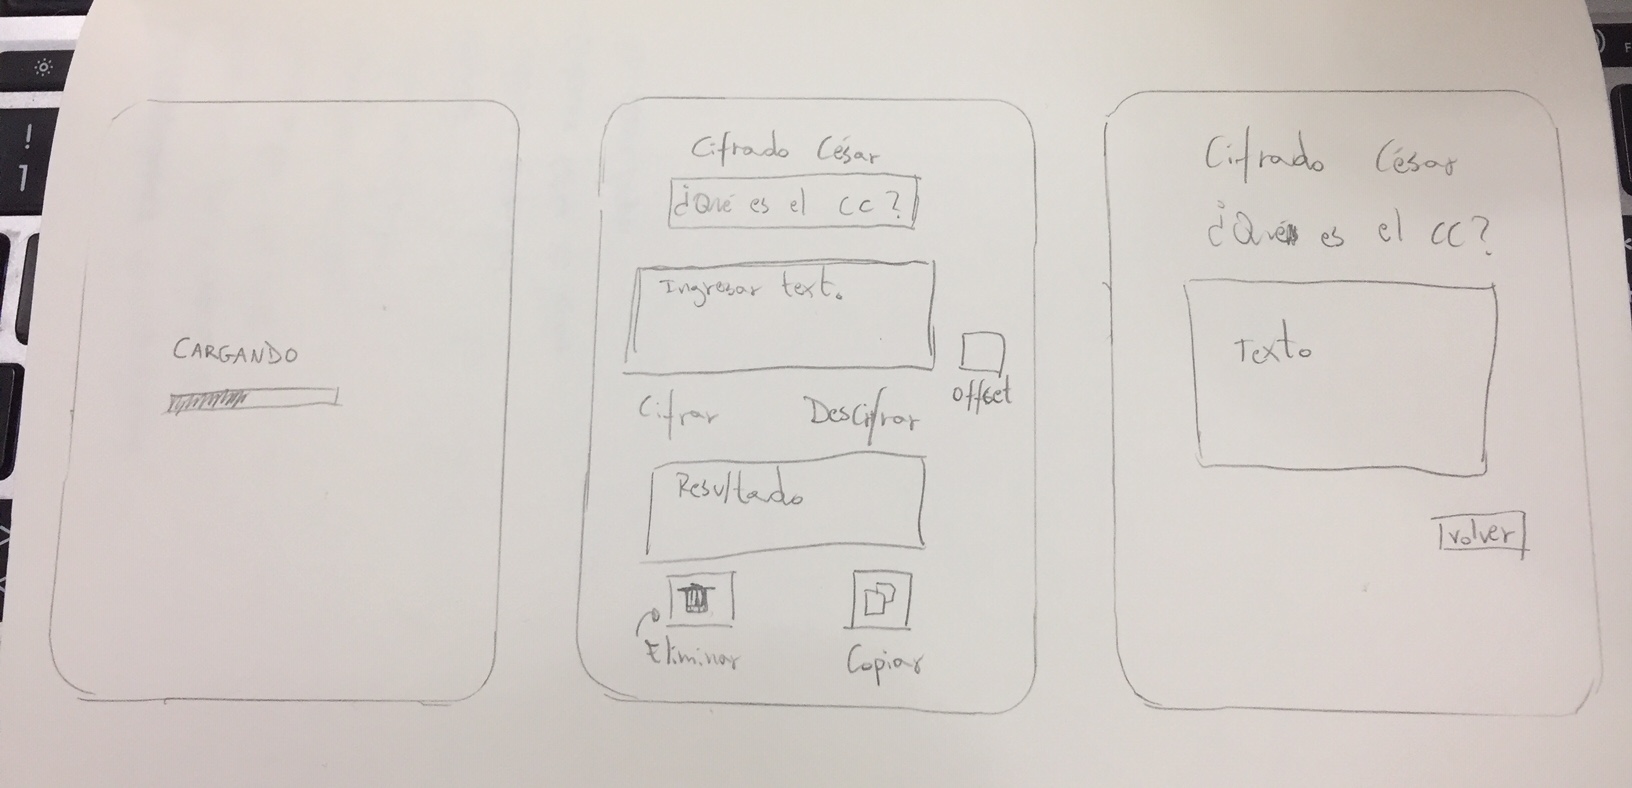 CARGANDO
Cifrado César
¿Qué es el CC?
Ingresar text.
offset
Cifrar Descifrar
Resultado
Eliminar Copiar
Cifrado César
¿Qué es el CC?
Texto
volver
!
1
F